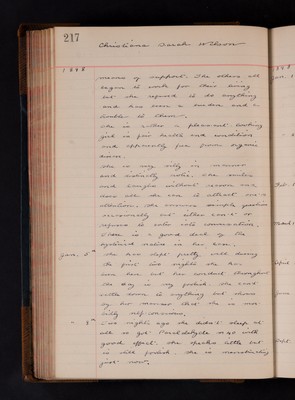 217
Christiana Sarah Wilson
1898
means of support. The others all
began to work for their living
but she refused to do anything
and has been a burden and a
trouble to them.
She is rather a pleasant looking
girl in fair health and condition
and apparently free from organic
disease.
She is very silly in manner
and distinctly erotic. She smiles
and laughs without reason and
does all she can to attract one's
attention. She answers simple questions
but either can't or
refuses to enter into conversation.
There is a good deal of the
hysterical nature in her case.
Jan. 5th She has slept pretty well during
the first two nights she has
been here but her conduct throughout
the day is very foolish. She can't
settle down to anything but shows
by her manner that she is
silly self-conscious.
" 8th Two nights ago she didn't sleep at
all so got Paraldehyde with
good effect. She speaks little but
is still foolish. She is menstruating
just now.